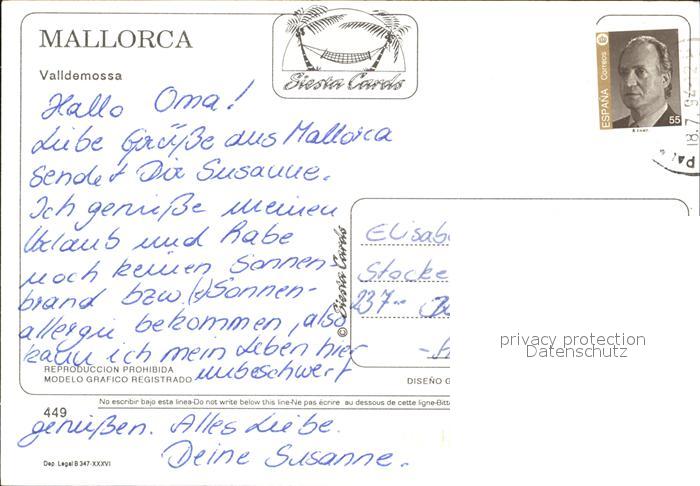 MALLORCA
Valldemossa
Siesta Cards
ESPAÑA
Correos
55
18.7.94
Hallo Oma!
Liebe Grüße aus Mallorca
sendet Dir Susanne.
Ich genieße meinen
Urlaub und habe
noch keinen Sonnen-
brand bzw. Sonnen-
allergie bekommen, also
kann ich mein Leben hier
unbeschwert
genießen. Alles Liebe.
Deine Susanne.
© Siesta Cards
Elisab
Stocke
237
REPRODUCCION PROHIBIDA
MODELO GRAFICO REGISTRADO
DISEÑO G
No escribir bajo esta linea-Do not write below this line-Ne pas écrire au dessous de cette ligne-Bitte
449
Dep. Legal B 347-XXXVI
privacy protection
Datenschutz